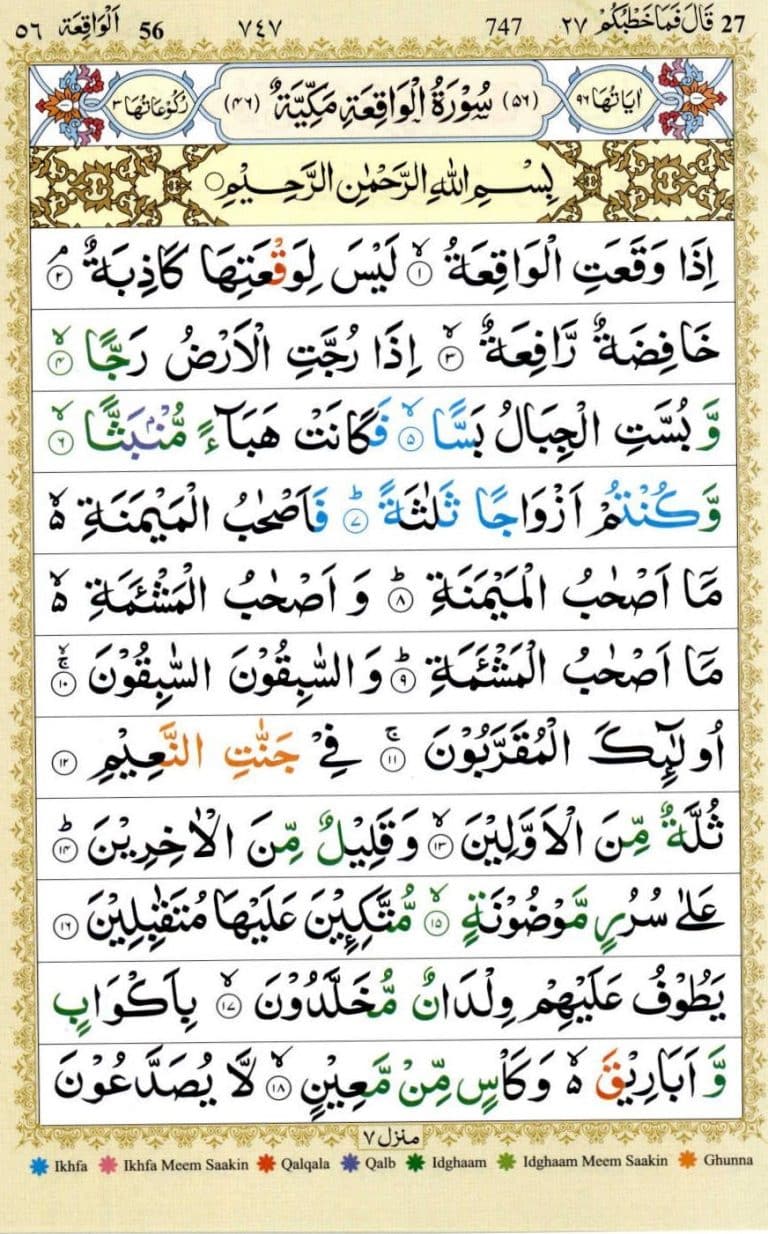 27 قَالَ فَمَا خَطْبُكُمْ ٢٧ 747 ٧٤٧ 56 اَلْوَاقِعَة ٥٦
اٰيَاتُهَا ٩٦ (٥٦) سُوْرَةُ الْوَاقِعَةِ مَكِّيَّةٌ (٤٦) رُكُوْعَاتُهَا ٣
بِسْمِ اللّٰهِ الرَّحْمٰنِ الرَّحِيْمِ
اِذَا وَقَعَتِ الْوَاقِعَةُ ۙ ١ لَيْسَ لِوَقْعَتِهَا كَاذِبَةٌ ۘ ٢
خَافِضَةٌ رَّافِعَةٌ ۙ ٣ اِذَا رُجَّتِ الْاَرْضُ رَجًّا ۙ ٤
وَّ بُسَّتِ الْجِبَالُ بَسًّا ۙ ٥ فَكَانَتْ هَبَآءً مُّنْۢبَثًّا ۙ ٦
وَّكُنْتُمْ اَزْوَاجًا ثَلٰثَةً ؕ ٧ فَاَصْحٰبُ الْمَيْمَنَةِ ۙ۬
مَاۤ اَصْحٰبُ الْمَيْمَنَةِ ؕ ٨ وَ اَصْحٰبُ الْمَشْـَٔمَةِ ۙ۬
مَاۤ اَصْحٰبُ الْمَشْـَٔمَةِ ؕ ٩ وَ السّٰبِقُوْنَ السّٰبِقُوْنَ ۚۙ ١٠
اُولٰٓئِكَ الْمُقَرَّبُوْنَ ۚ ١١ فِيْ جَنّٰتِ النَّعِيْمِ ١٢
ثُلَّةٌ مِّنَ الْاَوَّلِيْنَ ۙ ١٣ وَ قَلِيْلٌ مِّنَ الْاٰخِرِيْنَ ؕ ١٤
عَلٰى سُرُرٍ مَّوْضُوْنَةٍ ۙ ١٥ مُّتَّكِـِٕيْنَ عَلَيْهَا مُتَقٰبِلِيْنَ ١٦
يَطُوْفُ عَلَيْهِمْ وِلْدَانٌ مُّخَلَّدُوْنَ ۙ ١٧ بِاَكْوَابٍ
وَّ اَبَارِيْقَ ۙ۬ وَكَاْسٍ مِّنْ مَّعِيْنٍ ۙ ١٨ لَّا يُصَدَّعُوْنَ
منزل ٧
Ikhfa Ikhfa Meem Saakin Qalqala Qalb Idghaam Idghaam Meem Saakin Ghunna